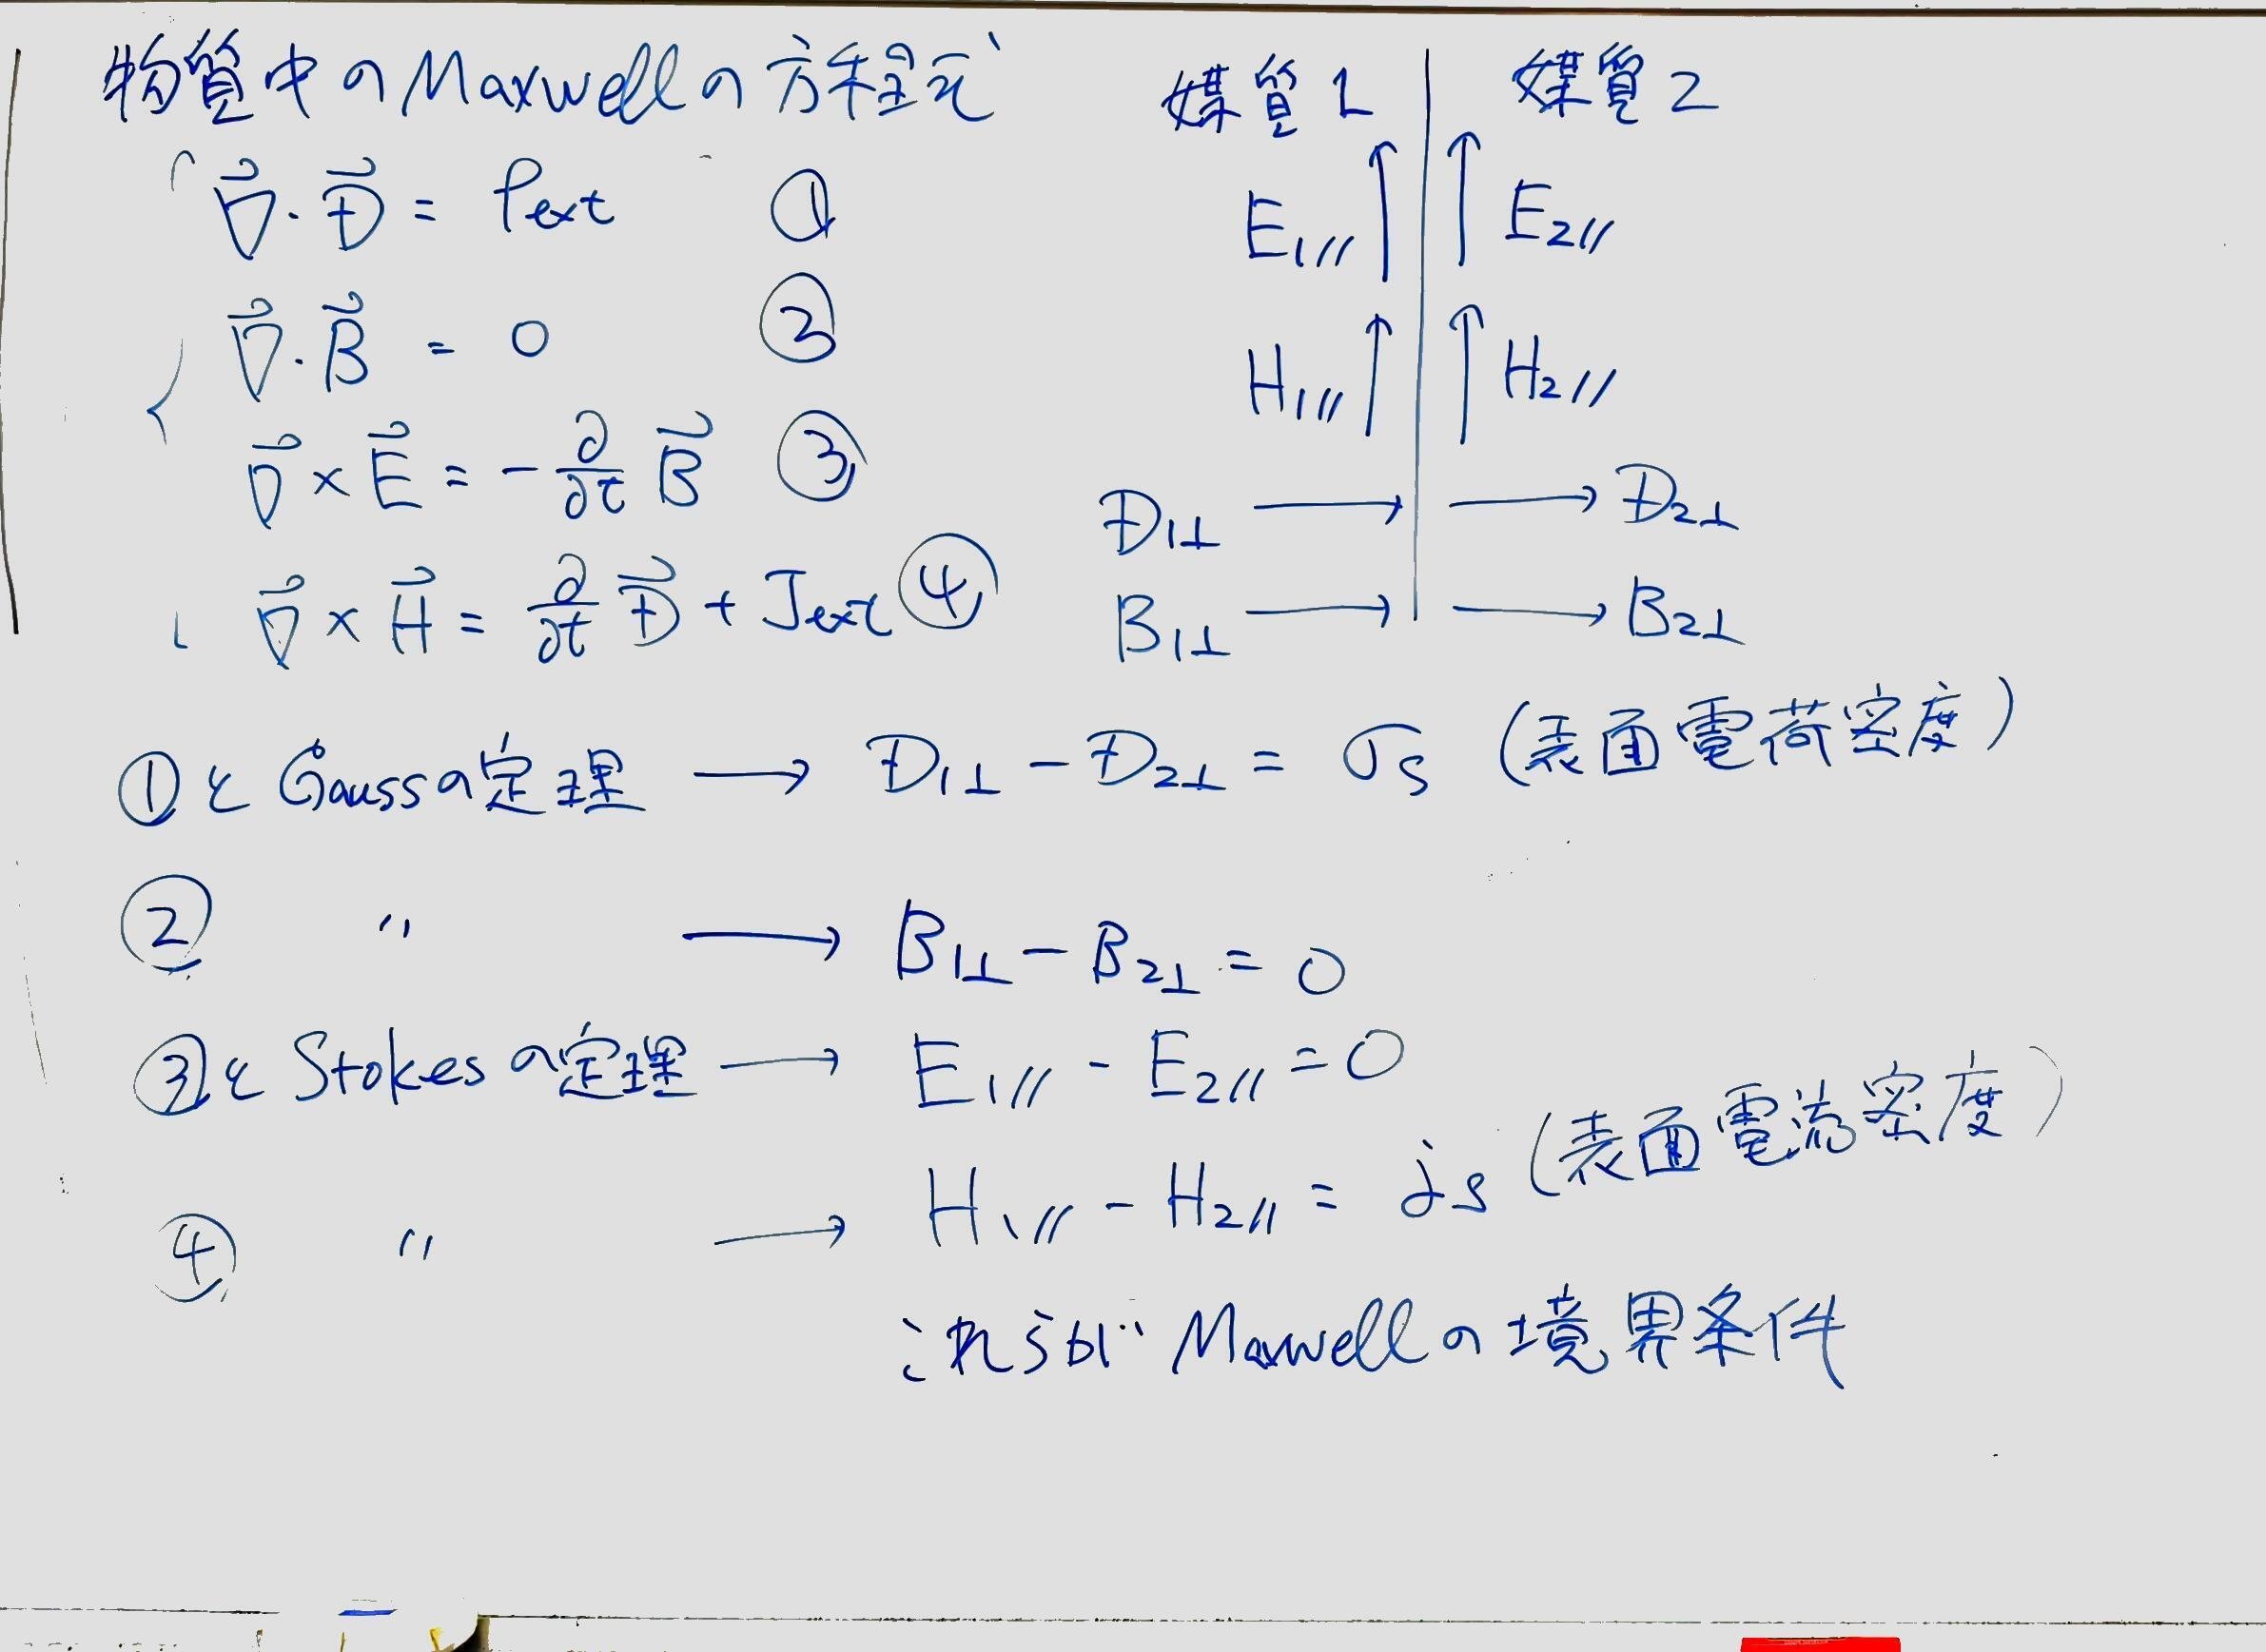 物質中のMaxwellの方程式
∇⃗・D⃗ = ρext ①
∇⃗・B⃗ = 0 ②
∇⃗×E⃗ = -∂/∂t B⃗ ③
∇⃗×H⃗ = ∂/∂t D⃗ + Jext ④
媒質1 媒質2
E1// E2//
H1// H2//
D1⊥ → → D2⊥
B1⊥ → → B2⊥
①と Gaussの定理 → D1⊥ - D2⊥ = σs (表面電荷密度)
② 〃 → B1⊥ - B2⊥ = 0
③と Stokesの定理 → E1// - E2// = 0
④ 〃 → H1// - H2// = js (表面電流密度)
これらが Maxwellの境界条件